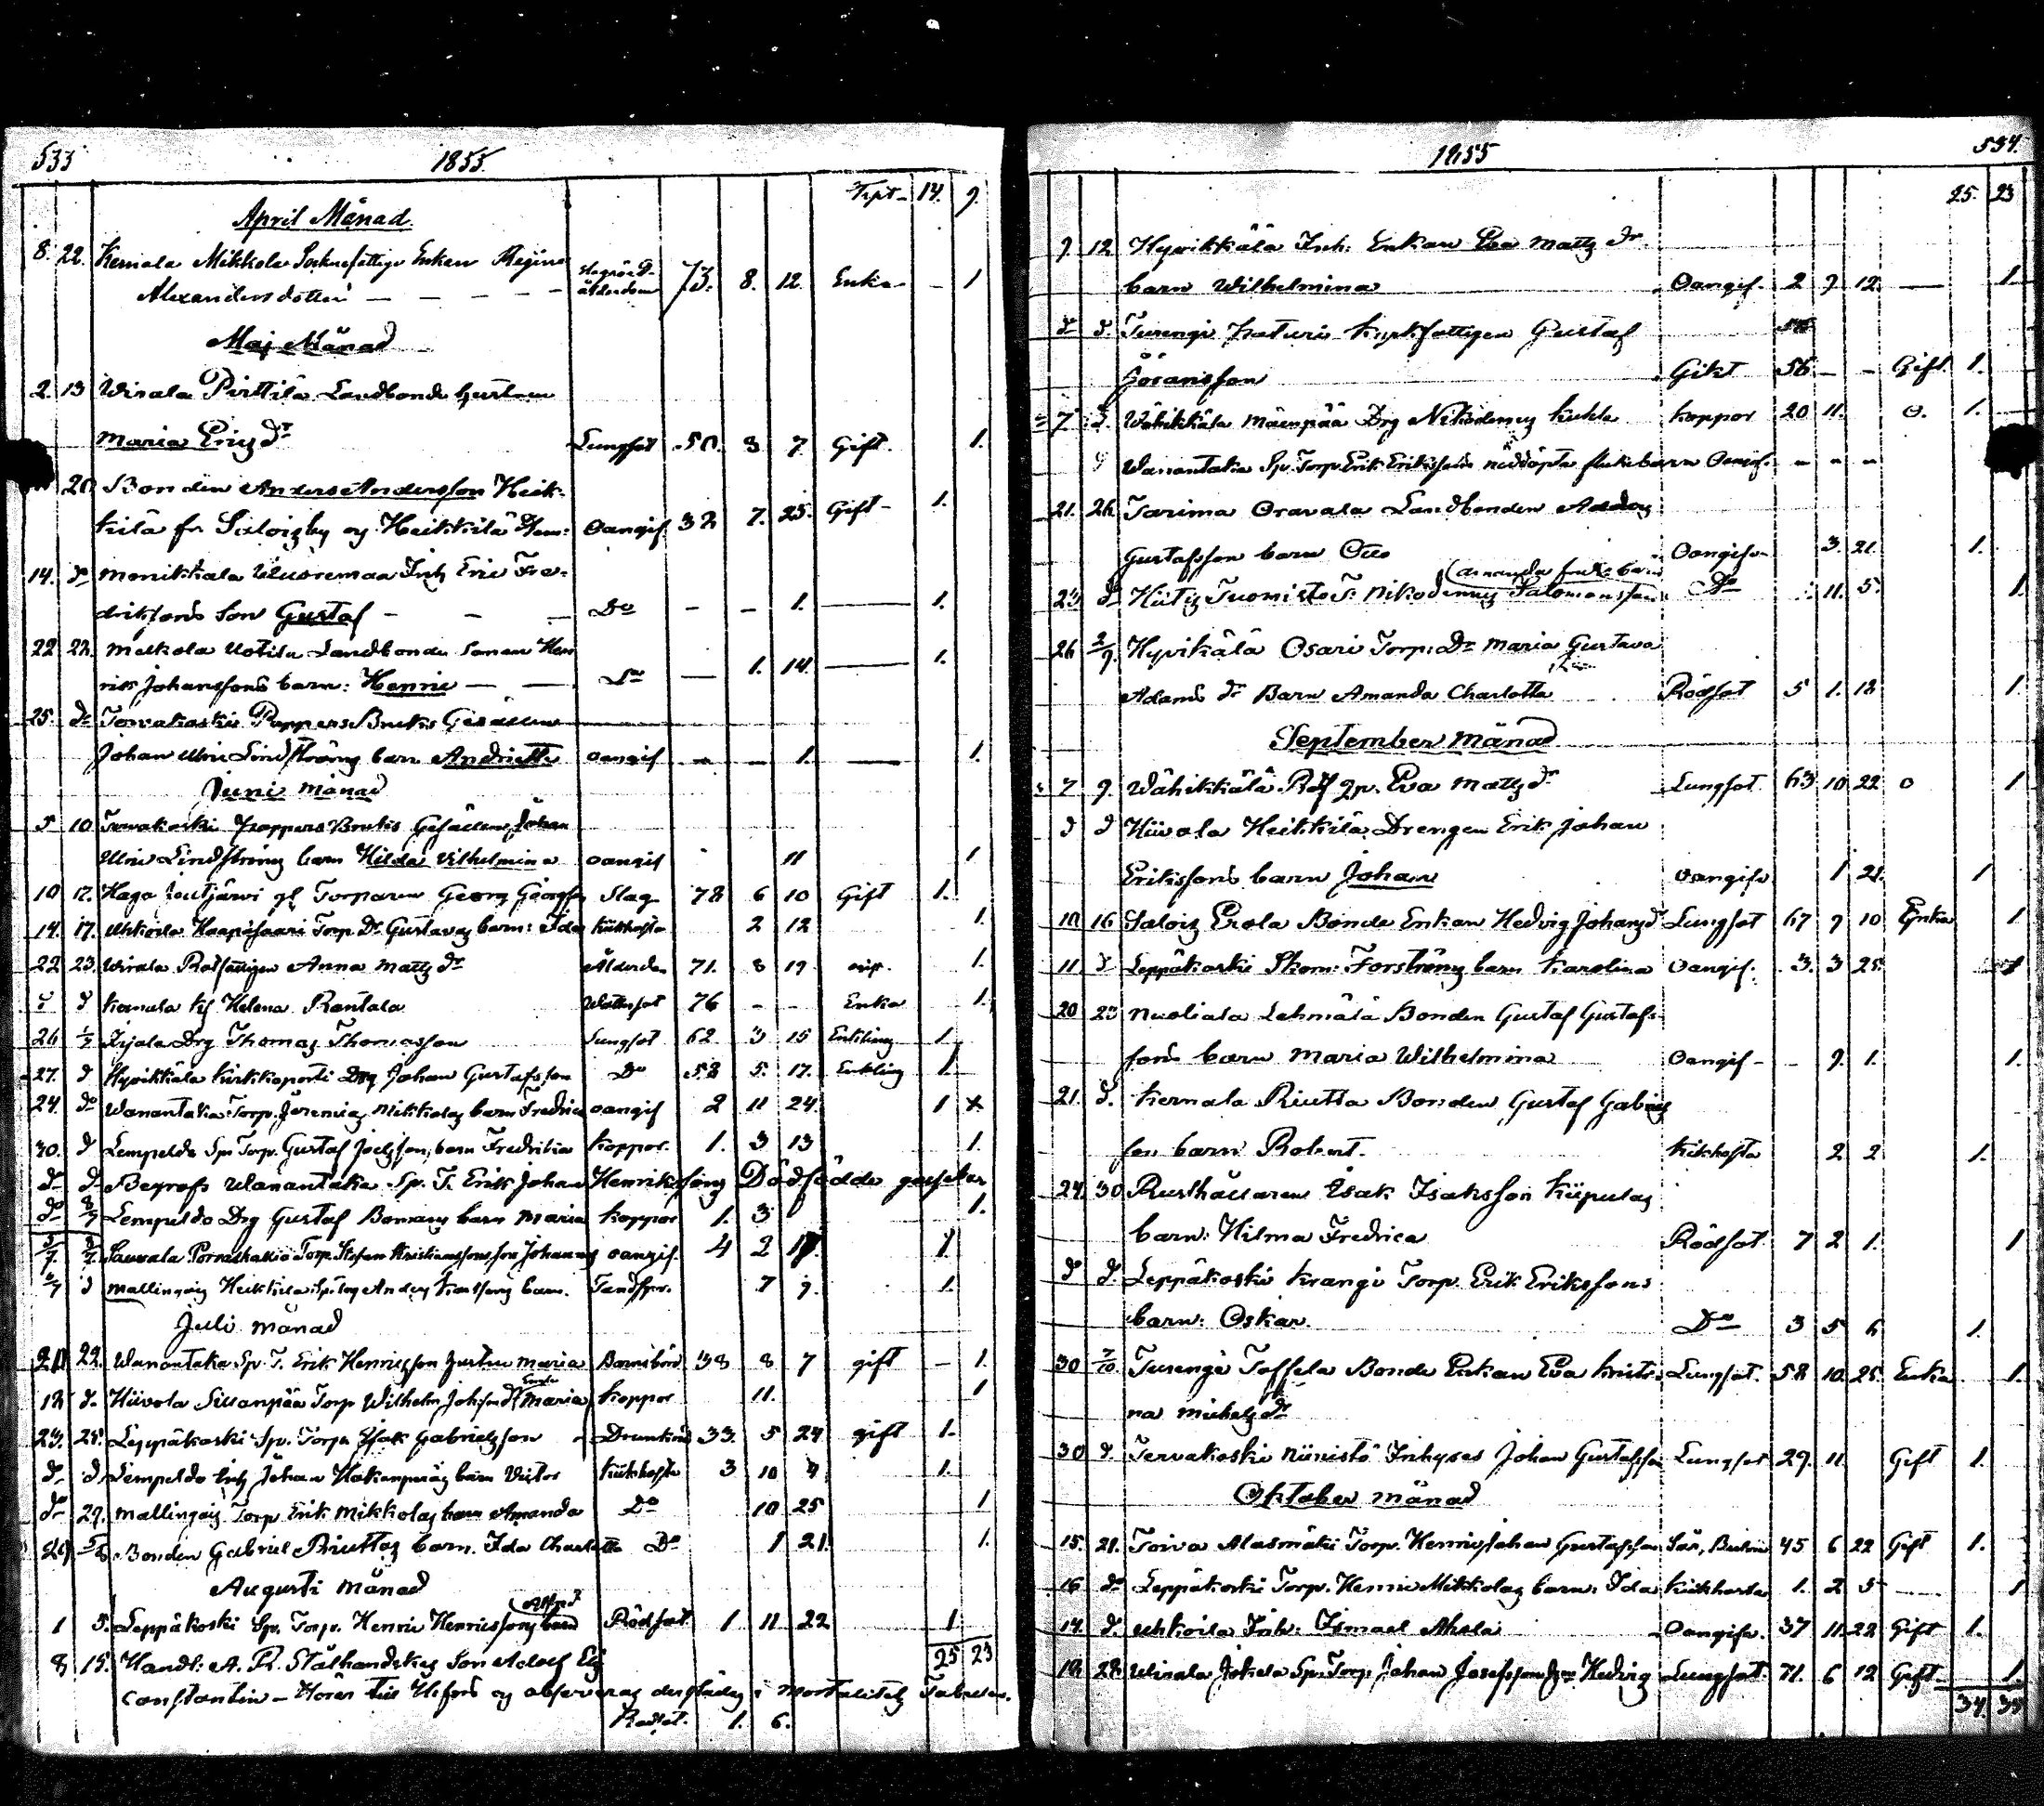 533 1855.
Trpt- 14. 9.
April Månad.
8. 22. Kernala Mikkola Sockenfattige Enkan Regina
Alexandersdotter - - - - ålderdom 73. 8. 12. Enka - 1
Maj Månad
2. 13 Wirala Pirttilä Landbonde hustrun
Maria Ericz dr Lungsot 50. 3 7 Gift. 1.
20 Bonden Anders Andersson Heik-
kilä fr Saloizby og Heikkilä Hem: Oangif. 32 7. 25. Gift - 1.
14. d Monikkala Uusremaa Inh Eric Fre-
driksons Son Gustaf - - - Do - - 1. 1.
22 22. Melkola Uotila Landbonde Sonen Hen
rik Johanssons barn: Henric - - Do - 1. 14. 1.
25. do Tervakoski Pappers Bruks Gesällen
Johan Ulric Lindström barn Andriette oangif - - 1. 1.
Juni månad
5 10 Tervakoski Pappers Bruks Gesällen Johan
Ulric Lindström barn Hilda Vilhelmina oangif 11 1
10 17. Haga Joutjärvi gl Torparen Georg Georgss. Slag 78 6 10 Gift 1.
14. 17. Uhkoila Haapisaari Torp. Dr Gustavaz barn: Ida Kikhosta 2 12 1.
22 23. Wirala Rotfattigen Anna Mattz dr Ålderdom 71. 8 19 1.
d Kernala Kf Helena Rantala Wattusot 76 - - Enka 1.
26 1/7 Irjala Drg Thomas Thomasson Lungsot 62. 3 15 Enkling 1.
27. d Hyvikkälä Kirkkoportti Drg Johan Gustafsson Do 58 5. 17. Enkling 1.
24. do Wanantaka Torp. Jeremias Mikkolas barn Fredrica oangif 2 11 24. 1 x
30. d Lempeldo Spv Torp. Gustaf Joelsson barn Fredrika Koppor 1. 3 13 1.
do d Begrofs Wanantaka Sp. T. Erik Johan Henrikssons Dödfödde gossebar
do 8/7 Lempeldo Drg Gustaf Bomans barn Maria Koppor 1. 3 1.
3/7. 8/7. Sauvala Torp. Stefan Kristianssons son Johannes oangif. 4 2 17. 1
d Mallingiz Heikkilä barn. Tandspr. 7 9. 1.
Juli månad
20 22. Wanantaka Sp. T. Erik Henricsson hustru Maria Barnsbörd 38 8 7 gift - 1.
12 d. Hiivola Sillanpää Torp Wilhelm dr Maria Koppor 11. 1
23. 25. Leppäkoski Spv. Torp. Isak Gabrielsson Drunknad 33. 5 24 gift 1.
d. d. Lempeldo Inh Johan Hakanpääs barn Victor Kikhosta 3 10 4 1.
do 29. Mallingiz Torp Erik Mikkolas barn Amanda Do 10 25 1
29 5/8 Bonden Gabriel Riuttas barn. Ida Charlotta Do 1 21. 1.
Augusti månad
Alfred
1 5. Leppäkoski Spv. Torp. Henric Henricssons barn Rödsot. 1 11 22 1.
8 15. Handl: A. R. Stålhandskes Son Adolf 25 23
Constantin - Hörer till H:fors og observeras derstädes i Mortalitets Tabellen.
Rödsot. 1. 6.
1855 534.
25. 23
9. 12 Hyvikkälä Inh. Enkan Eva Mattz dr.
barn Wilhelmina Oangif. 2 9 12. 1.
d d. Turengi Kyrkfattigen Gustaf
Göransson Gikt 56 - - Gift. 1.
7 d. Wähikkälä Mäenpää Drg Nikodemus Kukla Koppor 20 11. O. 1.
9 Wanantaka Sp. Torp. Erik Erikssons nöddöpta flickebarn Oangif. - - -
21. 26 Tarima Oravala Landbonden Adolf
Gustafsson barn Otto Oangifv 3. 21. 1.
Amanda
23 d Hiitiz Tuomisto T. Nikodemus Salomonsson Do 11. 5. 1
26 2/9. Hyvikälä Osari Torp: Dr Maria Gustava
Adams dr Barn Amanda Charlotta Rödsot 5 1. 12 1
September månad
7 9. Wähikkälä Rotf gp. Eva Mattz dr Lungsot 63 10 22 O 1
d d Hiivola Heikkilä Drengen Erik Johan
Erikssons barn Johan oangifv 1 21. 1
10 16 Saloiz Erola Bonde Enkan Hedvig Johanz dr Lungsot 67 9 10 Enka 1
11 d Leppäkoski Skom: Forströms barn Karolina Oangif. 3. 3 25. 1
20 23 Nuoliala Lehmälä Bonden Gustaf Gustafs-
sons barn Maria Wilhelmina Oangif - - 9. 1. 1.
21. d. Kernala Riutta Bonden Gustaf Gabriels
son barn Robert. Kikhosta 2 2 1.
24. 30 Rusthållaren Isak Isaksson Kiipulas
barn: Hilma Fredrica Rödsot 7 2 1. 1
d d. Leppäkoski Krangi Torp. Erik Erikssons
barn: Oskar. Do 3 5 6 1.
30 7/10. Turengi Toffela Bonde Enkan Eva Kristi- Lungsot. 58 10. 25. Enka 1.
na Michelz dr
30 d. Tervakoski Niinistö Inhyses Johan Gustafsson Lungsot 29. 11. Gift 1.
Oktober månad
15. 21. Toiva Alasmäki Torp. Henric Johan Gustafsson 45 6 22 Gift 1.
16 do Leppäkoski Torp. Henric Mikkolas barn. Ida Kikhosta 1. 2 5 1
14. d. Uhkoila Inh: Ismael Ahola Oangifv. 37 11. 22 Gift 1.
19. 28. Wirala Jokela Sp. Torp. Johan Josefsson Hedvig Lungsot. 71. 6 12 Gift 1.
34. 34